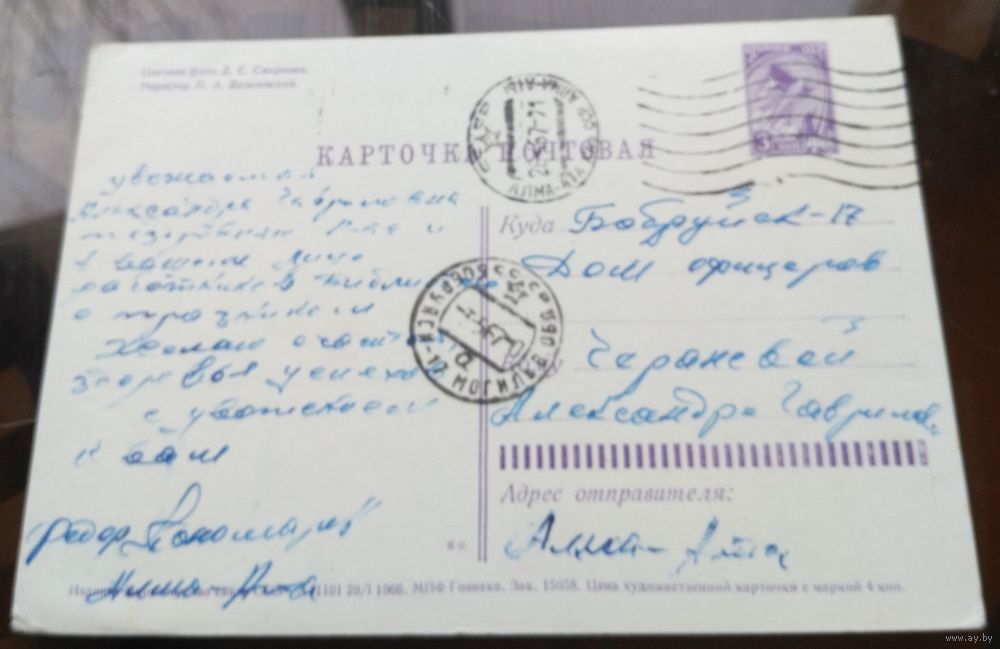 Цветное фото Д. С. Смирнова.
Редактор П. А.
КАРТОЧКА ПОЧТОВАЯ
3
коп
АЛМА-АТА
уважаемая
Александра Гавриловна
поздравляю Вас и
в вашем лице
работников библи
с праздником
желаю счастья
здоровья успехов
с уважением
к вам
Федор Пономарев
Алма-Ата
Куда Бобруйск-17
Дом офицеров
Александре Гаврилов.
Адрес отправителя:
Алма-Ата
29/I 1966. МПФ Гознака. Зак. 15058. Цена художественной карточки с маркой 4 коп.
www.ay.by